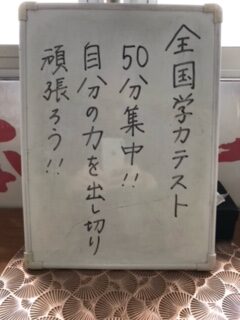 全国学力テスト
50分集中!!
自分の力を出し切り
頑張ろう!!